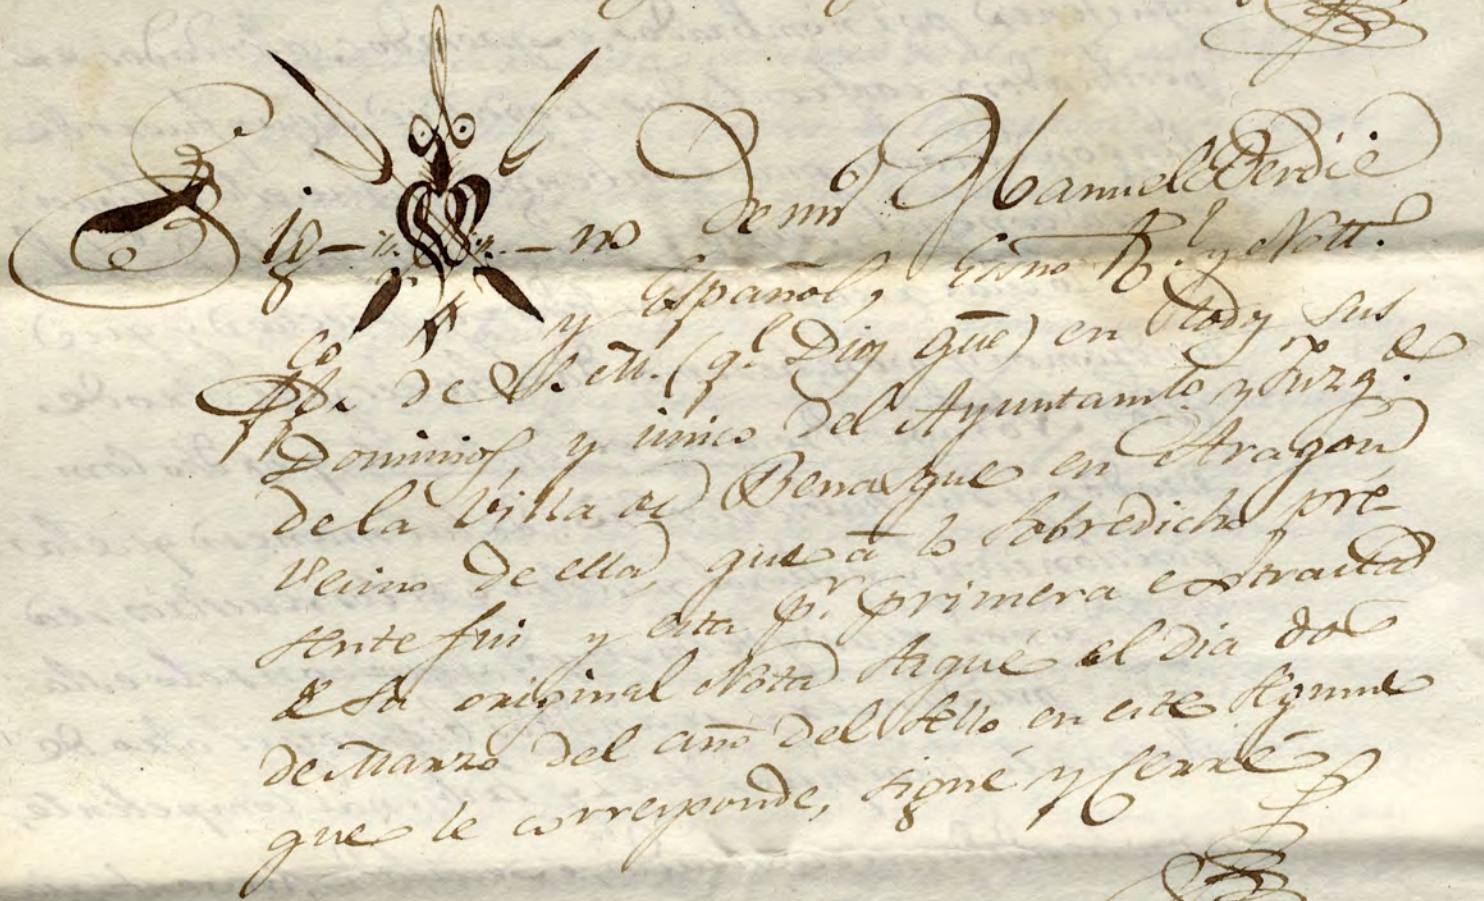 Sig-no De mi Manuel Ferdie
y Español, Esno Rl. y Nott.
co Ppb. de S. M. (q.l Dios gũe) en todos sus
Dominios, y unico del Ayuntamto. y Juzg.do
de la Villa de Benasque en Aragon
Vecino de ella, que à lo sobredicho pre-
sente fui y esta pr. primera extracta
de su original Nota saqué el dia dos
de Marzo del año del sello en este
que le corresponde, signé y Cerré